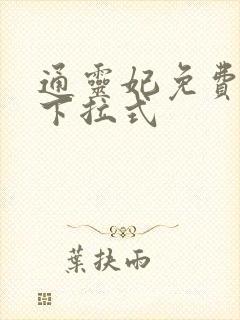 通靈妃免費
下拉式
葉扶雨